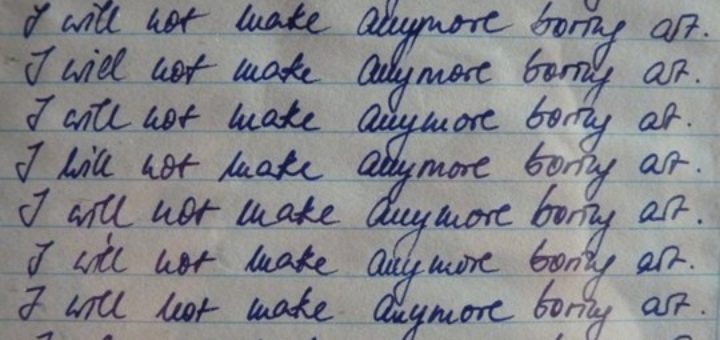 I will not make anymore boring art.
I will not make anymore boring art.
I will not make anymore boring art.
I will not make anymore boring art.
I will not make anymore boring art.
I will not make anymore boring art.
I will not make anymore boring art.